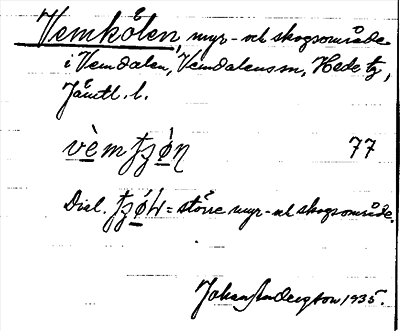 Vemkölen, myr- och skogsområde
i Vemdalen, Vemdalens sn, Hede tg,
Jämtl. l.
vèmʈʂǿɳ 77
Dial. ʈʂǿɬ = större myr- och skogsområde.
Johan Anderzton 1935.